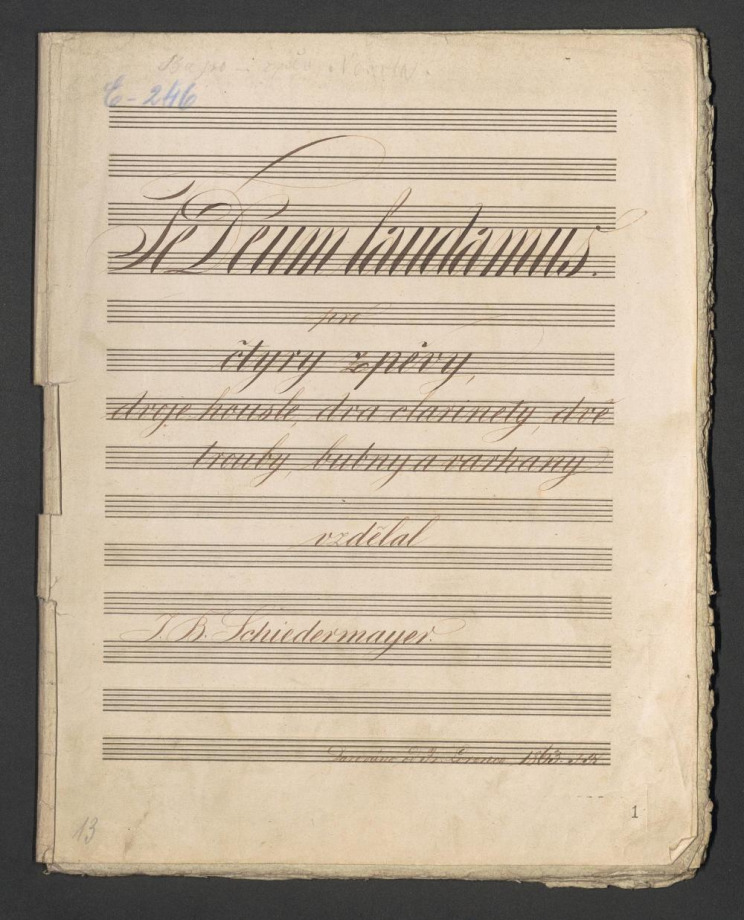 E-246
Te Deum laudamus.
pro
čtyry zpěvy,
dvoje housle, dva clarinety, dvě
trouby, bubny a varhany
vzdělal
J. B. Schiedermayer.
1863
1
13